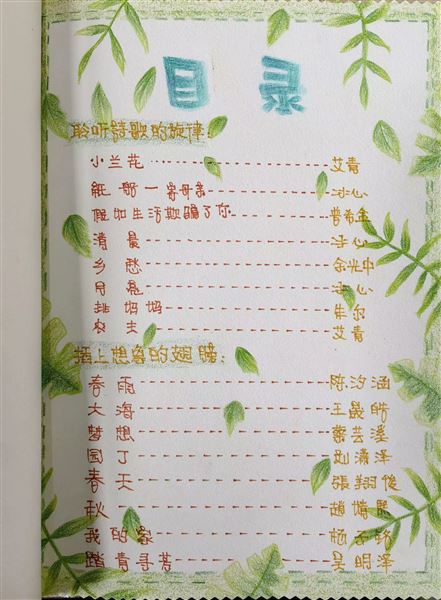 目 录
聆听诗歌的旋律
小兰花 艾青
纸船一寄母亲 冰心
假如生活欺骗了你 普希金
清晨 冰心
乡愁 余光中
月亮 冰心
挑妈妈 朱尔
农夫 艾青
插上想象的翅膀:
春雨 陈汐涵
大海 王晟皓
梦想
园丁 刘清泽
春天 張翔俊
秋
我的家
踏青寻芳 吴明泽